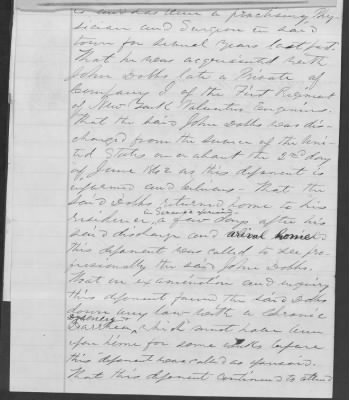 is and has been a practising Phy-
sician and Surgeon in said
town for several years last past.
That he was acquainted with
John Dobbs late a Private of
Company I of the First Regiment
of New York Volunteer Engineers.
That the said John Dobbs was dis-
charged from the service of the Uni-
ted States on or about the 2nd day
of June 1862 as this deponent is
informed and believes - That the
said Dobbs returned home to his
residence, a few days after his
said discharge and arival home
this deponent was called to see pro-
fessionally the said John Dobbs.
That on examination and inquiry
this deponent found the said Dobbs
down very low with a chronic
Diarrhea, which must have been
upon him for some weeks before
this deponent was called as aforesaid.
That this deponent continued to attend